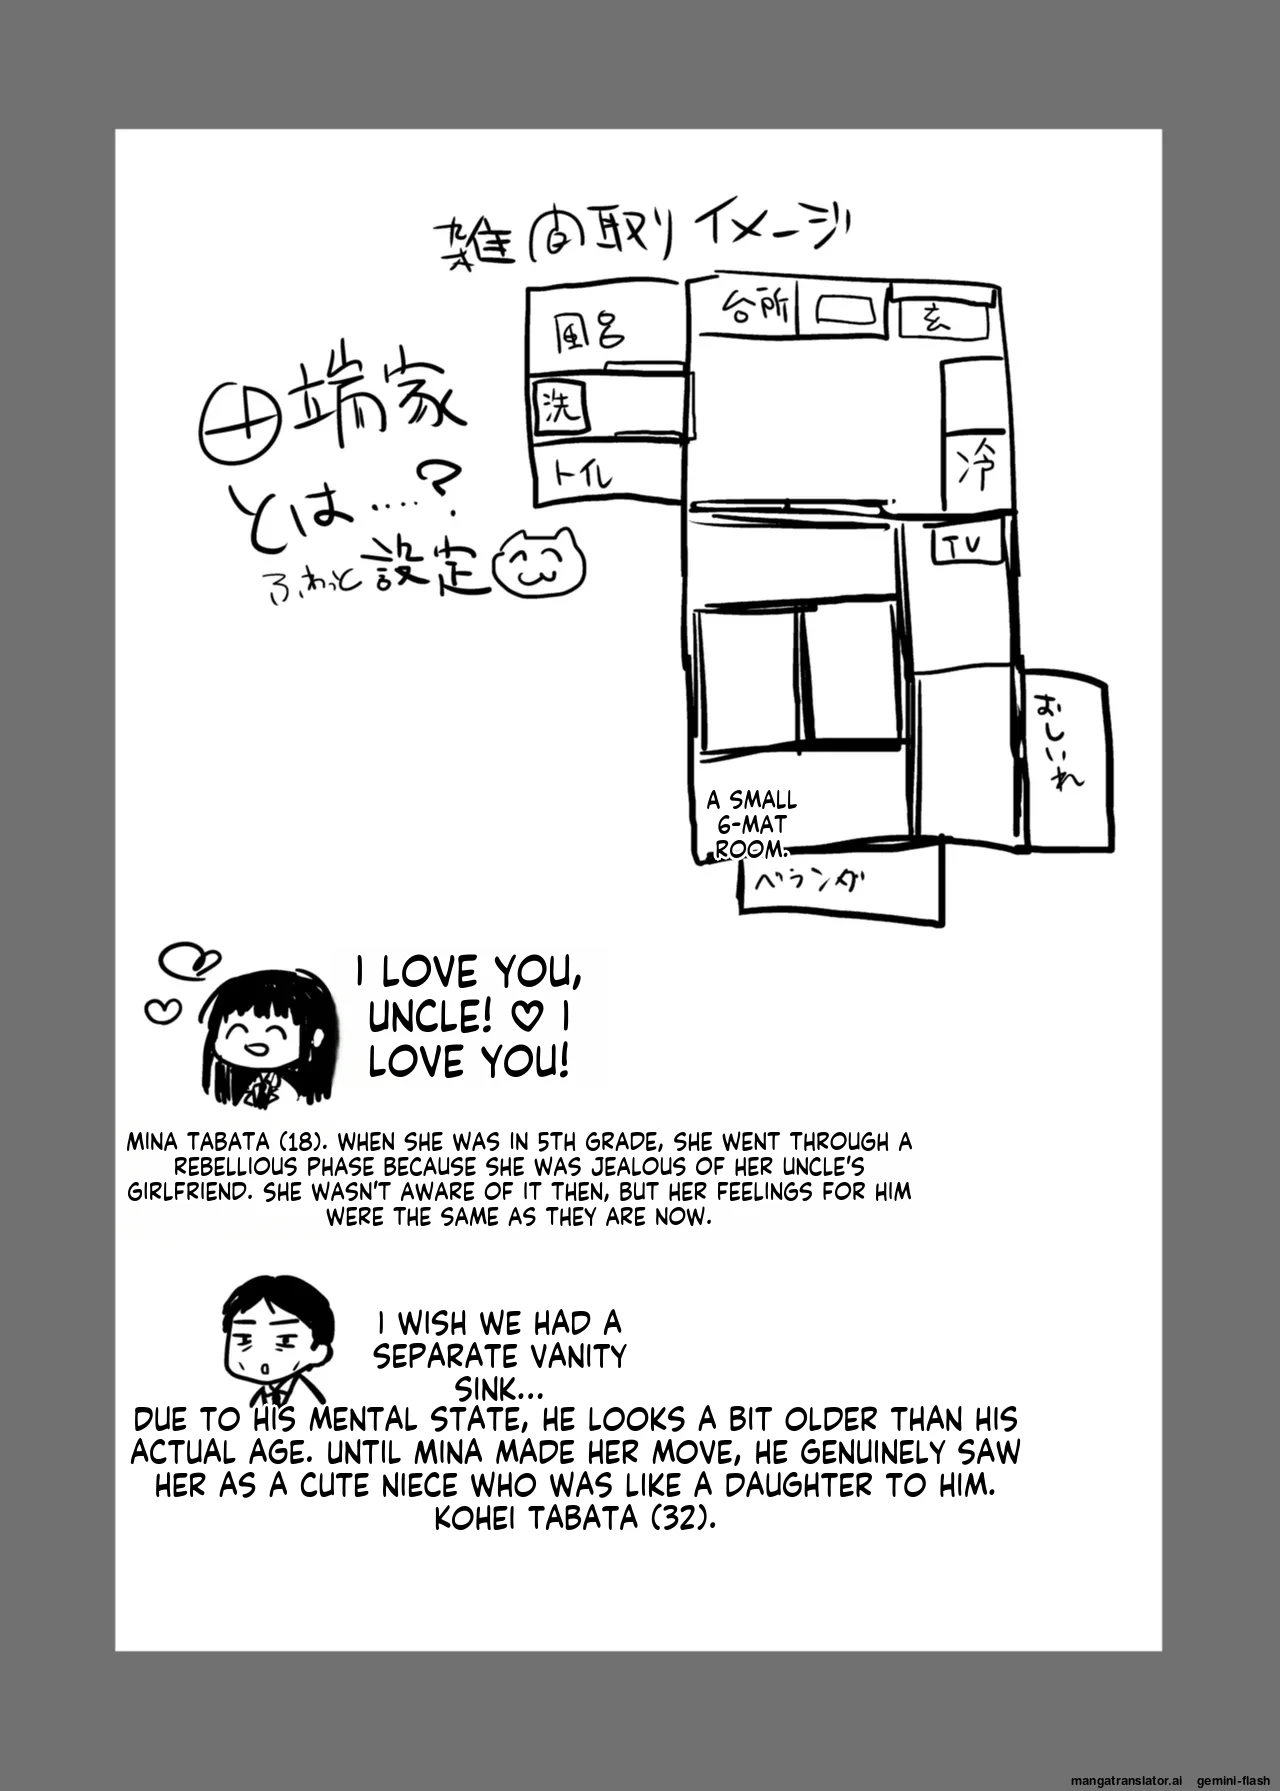 雑間取りイメージ
田端家
とは……?
ふわっと設定
風呂
洗
トイレ
台所
玄
冷
TV
おしいれ
A SMALL
6-MAT
ROOM.
ベランダ
I LOVE YOU,
UNCLE! ♡ I
LOVE YOU!
MINA TABATA (18). WHEN SHE WAS IN 5TH GRADE, SHE WENT THROUGH A
REBELLIOUS PHASE BECAUSE SHE WAS JEALOUS OF HER UNCLE'S
GIRLFRIEND. SHE WASN'T AWARE OF IT THEN, BUT HER FEELINGS FOR HIM
WERE THE SAME AS THEY ARE NOW.
I WISH WE HAD A
SEPARATE VANITY
SINK...
DUE TO HIS MENTAL STATE, HE LOOKS A BIT OLDER THAN HIS
ACTUAL AGE. UNTIL MINA MADE HER MOVE, HE GENUINELY SAW
HER AS A CUTE NIECE WHO WAS LIKE A DAUGHTER TO HIM.
KOHEI TABATA (32).
mangatranslator.ai gemini-flash